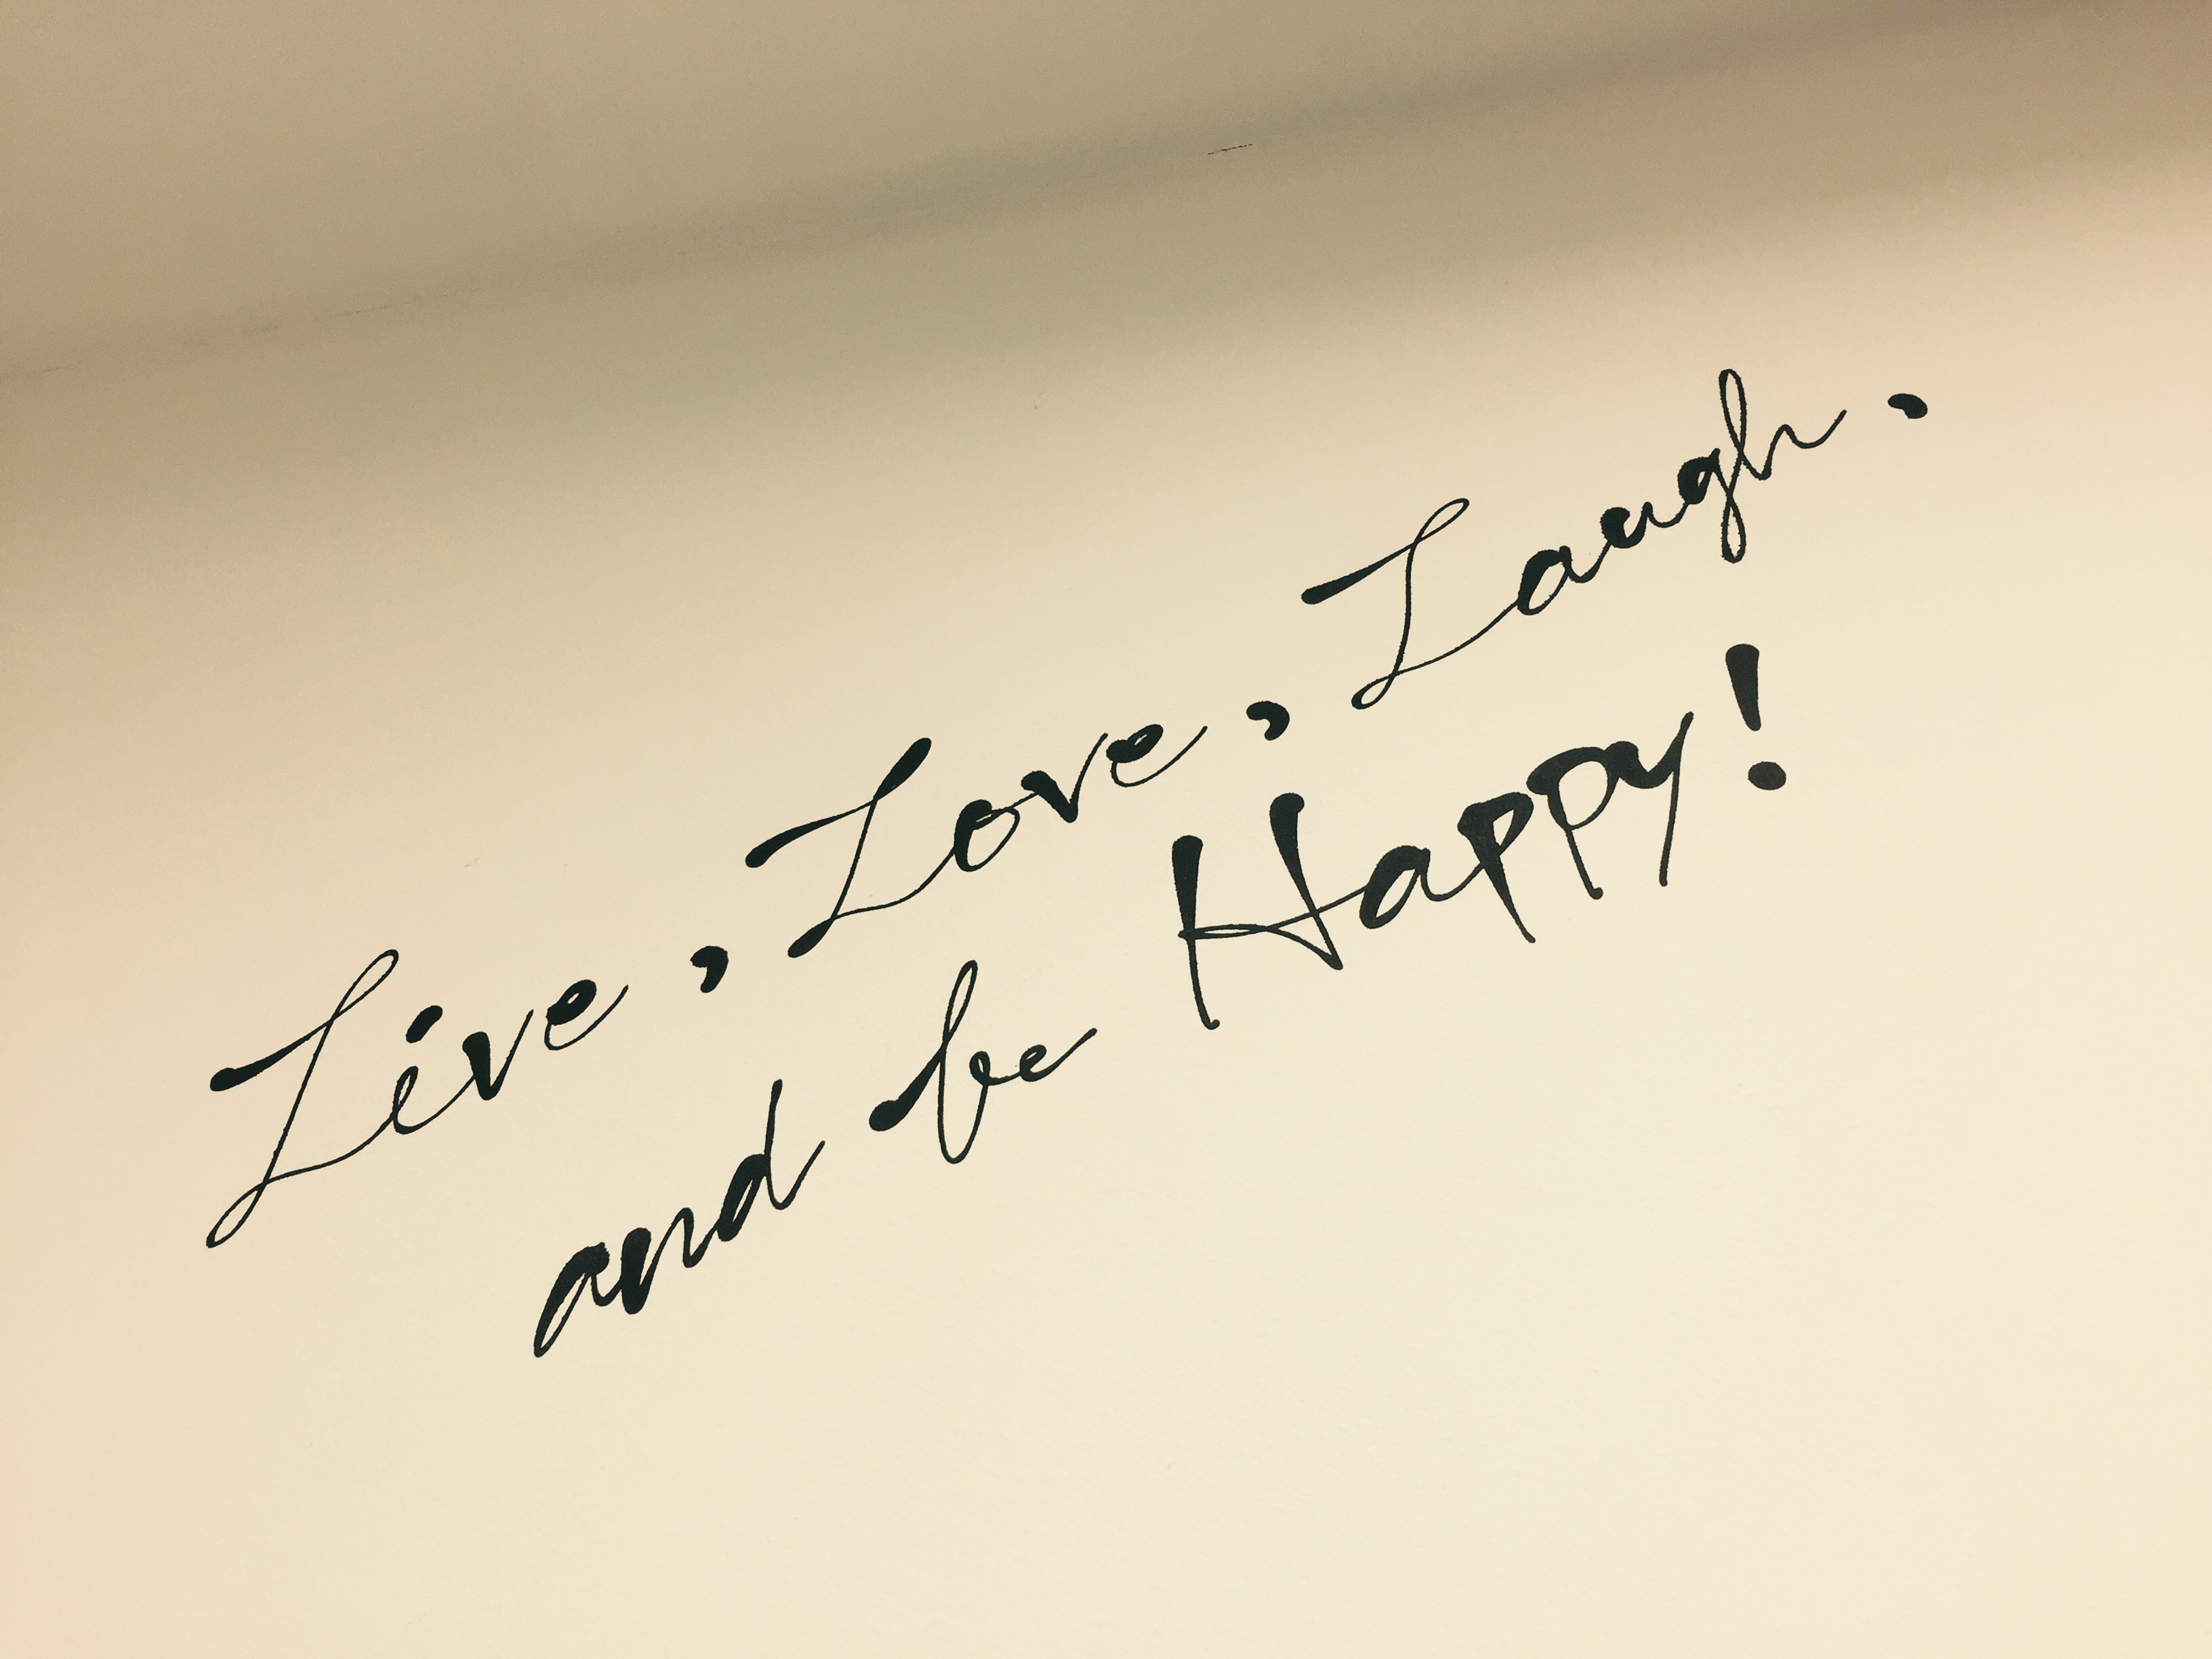 Live, Love, Laugh.
and be Happy!